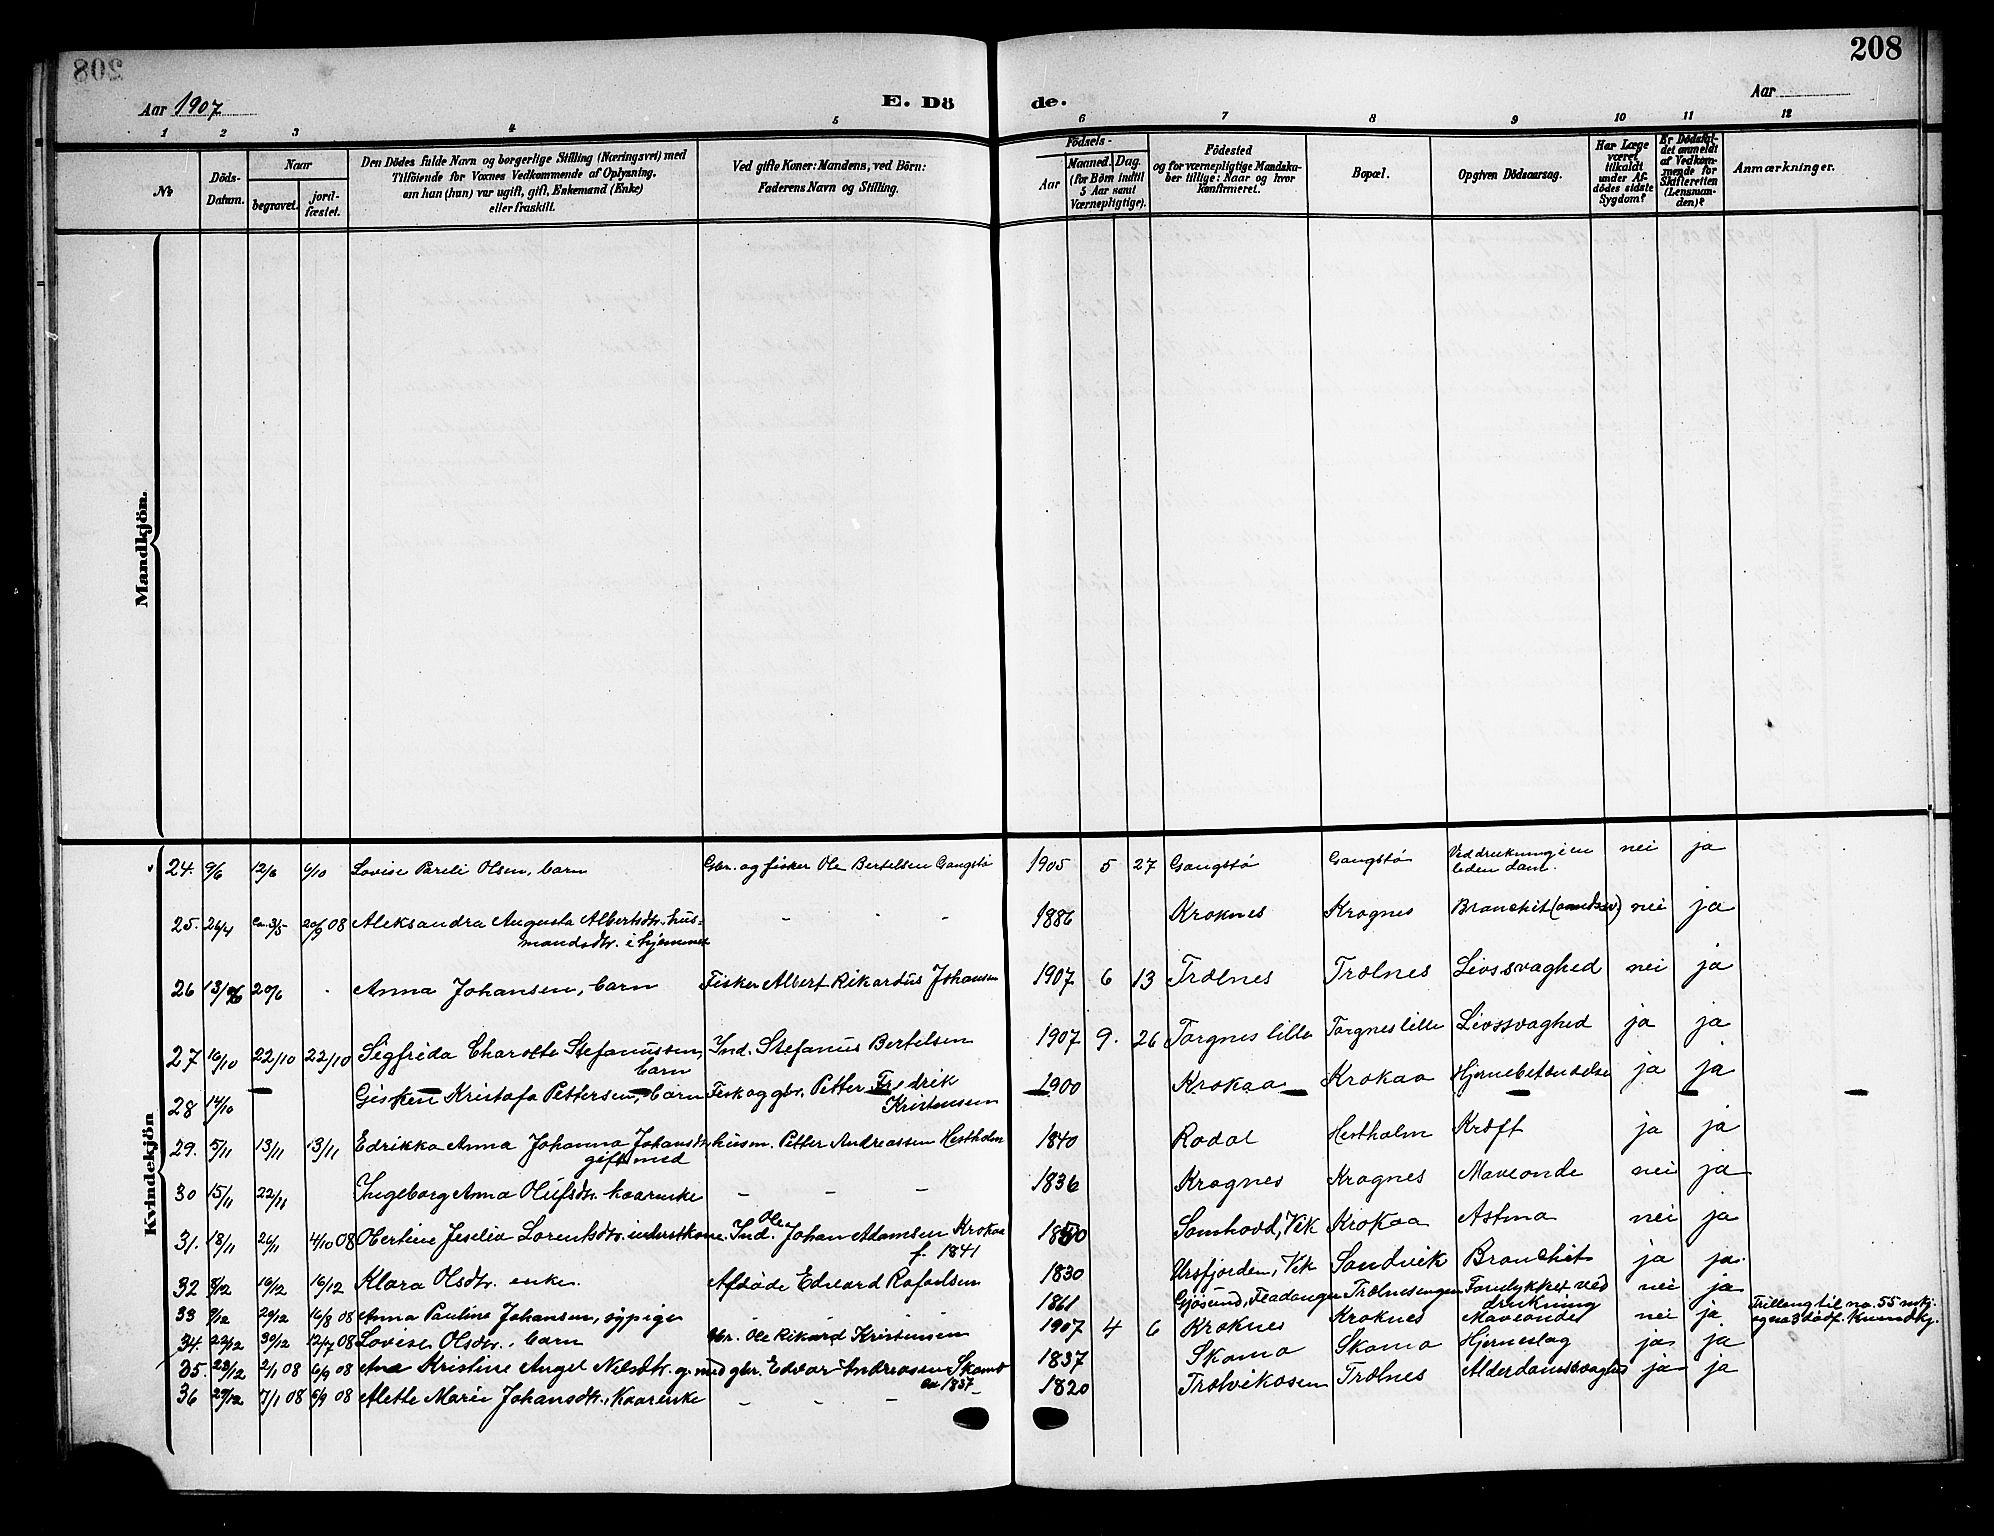 208
Aar 1907
E. Dö
de.
Aar
1 2 3 4 5 6 7 8 9 10 11 12
No
Döds-Datum.
Naar
begravet.
jordfæstet.
Den Dödes fulde Navn og borgerlige Stilling (Næringsvei) med
Tilföiende for Voxnes Vedkommende af Oplysning,
om han (hun) var ugift, gift, Enkemand (Enke)
eller fraskilt.
Ved gifte Koner: Mandens, ved Börn:
Faderens Navn og Stilling.
Födsels-
Aar
Maaned. Dag.
(for Börn indtil
5 Aar samt
Værnepligtige).
Födested
og for værnepligtige Mandska-
ber tillige: Naar og hvor
konfirmeret.
Bopæl.
Opgiven Dödsaarsag.
Har Læge
været
tilkaldt
under Af-
dödes sidste
Sygdom?
Er Dödsfal-
det anmeldt
af Vedkom-
mende for
Skifteretten
(Lensman-
den)?
Anmærkninger.
Mandkjön.
Kvindekjön
24. 9/6 12/6 6/10 Lovise Pareli Olsen, barn Gbr. og fisker Ole Bertelsen Gangstø 1905 5 27 Gangstø Gangstø Ved drukning i en nei ja
dam.
25. 26/4 3/5 20/9 08 Aleksandra Augusta Albertsdtr. hus-
mandsdtr. i hjemmet - - 1886 Kroknes Krognes Bronchit nei ja
26 13/6 20/6 - Anna Johansen, barn Fisker Albert Rikardus Johansen 1907 6 13 Trælnes Trælnes Livssvaghed nei ja
27 16/10 22/10 22/10 Sigfrida Charotte Stefanussen, Ind. Stefanus Bertelsen 1907 9. 26 Torgnes lille Torgnes lille Livssvaghed ja ja
barn
28 14/10 Kristofa Pettersen, barn Fisk og gbr. Petter Fredrik 1900 Krokaa Krokaa Hjernebetændelse ja ja
Kristensen
29. 5/11 13/11 13/11 Edrikka Anna Johanna Johansdtr husm. Petter Andreassen Hestholm 1840 Rodal Hestholm Kræft ja ja
gift med
30 15/11 22/11 Ingeborg Anna Olufsdtr. kaarenke - - - 1836 Krognes Krognes Maveonde nei ja
31. 18/11 26/11 4/10 08 Obertine Jeselia Lorentsdtr. inderstkone. Ind. Ole Johan Adamsen Krokaa Somhovd, Vik Krokaa Astma nei ja
f. 1841
32 8/12 16/12 16/12 Klara Olsdtr. enke. Afdøde Edvard Rafaelsen 1830 Ursfjorden, Vik Sandvik Bronchit ja ja
33 9/12 29/12 16/8 08 Anna Pauline Johansen, sypige 1861 Gjøsund, Trælnesengen Forulykket ved nei ja
drukning
34. 22/12 30/12 12/7 08 Lovise Olsdtr. barn gbr. Ole Rikard Kristensen 1907 4 6 Kroknes Kroknes Maveondes nei ja Trilling til no. 55 mkj.
og no 3 Kvindkj.
35. 22/12 2/1 08 6/9 08 Ana Kristine Angel Nilsdtr. g. med gbr. Edvar Andreasen Skomo 1837 Skomo Skomo Hjerneslag ja ja
1837
36 29/12 7/1 08 6/9 08 Alette Marie Johansdtr. Kaarenke - - - 1820 Trælvikosen Trælnes Alderdomssvaghed ja ja